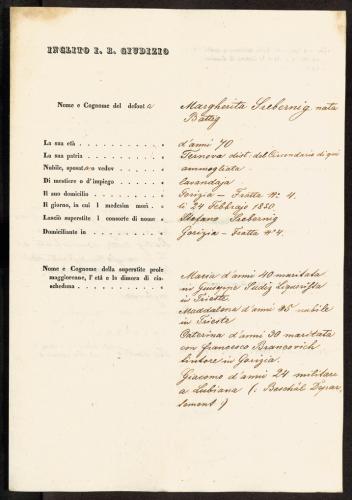 INCLITO I. R. GIUDIZIO
Nome e Cognome del defunta Margherita Srebernig nata
Battig
La sua età d'anni 70
La sua patria Ternova dist. del Circondario di qui
Nubile, sposat.a o vedov ammogliata
Di mestiere o d'impiego lavandaja
Il suo domicilio Gorizia - Fratta No. 4.
Il giorno, in cui l medesim morì li 24 Febbrajo 1850
Lasciò superstite l consorte di nome Stefano Srebernig
Domiciliante in Gorizia - Fratta No 4.
Nome e Cognome della superstite prole
maggiorenne, l'età e la dimora di cia-
scheduna
Maria d'anni 40 maritata
in Giuseppe
in Trieste.
Maddalena d'anni 35 nubile
in Trieste
Caterina d'anni 30 maritata
con Francesco Brancovich
tintore in Gorizia.
Giacomo d'anni 24 militare
a Lubiana